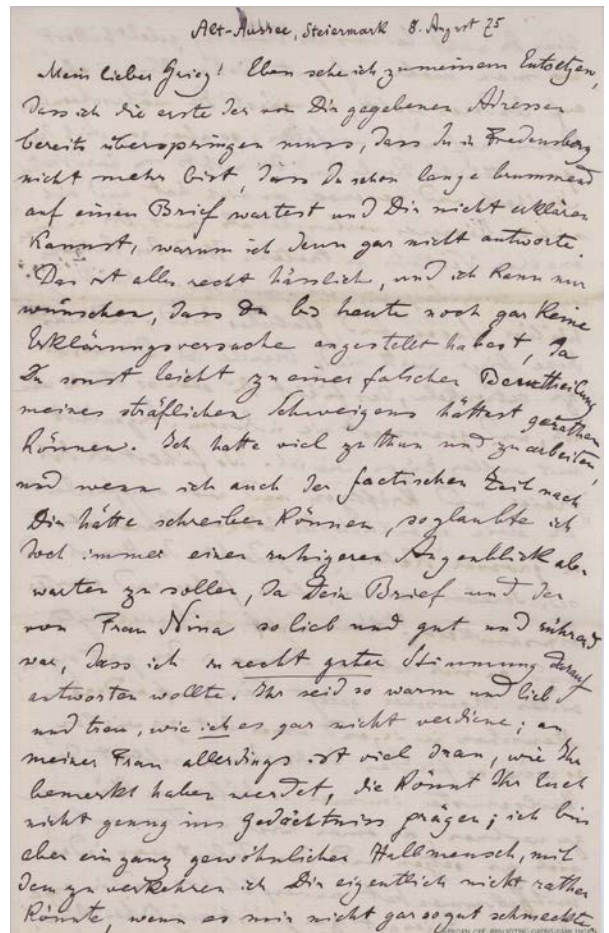 Alt-Aussee, Steiermark 8. August 75
Mein lieber Grieg! Eben sehe ich zu meinem Entsetzen,
dass ich die erste der von Dir gegebenen Adressen
bereits überspringen muss, dass Du in Fredensborg
nicht mehr bist, dass Du schon lange brummend
auf einen Brief wartest und Dir nicht erklären
kannst, warum ich denn gar nicht antworte.
Das ist alles recht hässlich, und ich kann nur
wünschen, dass Du bis heute noch gar keine
Erklärungsversuche angestellt habest, da
Du sonst leicht zu einer falschen Beurtheilung
meines sträflichen Schweigens hättest gerathen
können. Ich hatte viel zu thun und zu arbeiten,
und wenn ich auch der factischen Zeit nach
Dir hätte schreiben können, so glaubte ich
doch immer einen ruhigeren Augenblick ab-
warten zu sollen, da Dein Brief und der
von Frau Nina so lieb und gut und rührend
war, dass ich in recht guter Stimmung darauf
antworten wollte. Ihr seid so warm und lieb
und treu, wie ich es gar nicht verdiene; an
meiner Frau allerdings ist viel dran, wie Ihr
bemerkt haben werdet, die könnt Ihr Euch
nicht genug ins Gedächtniss prägen; ich bin
aber ein ganz gewöhnlicher Halbmensch, mit
dem zu verkehren ich Dir eigentlich nicht rathen
könnte, wenn es mir nicht gar so gut schmeckte